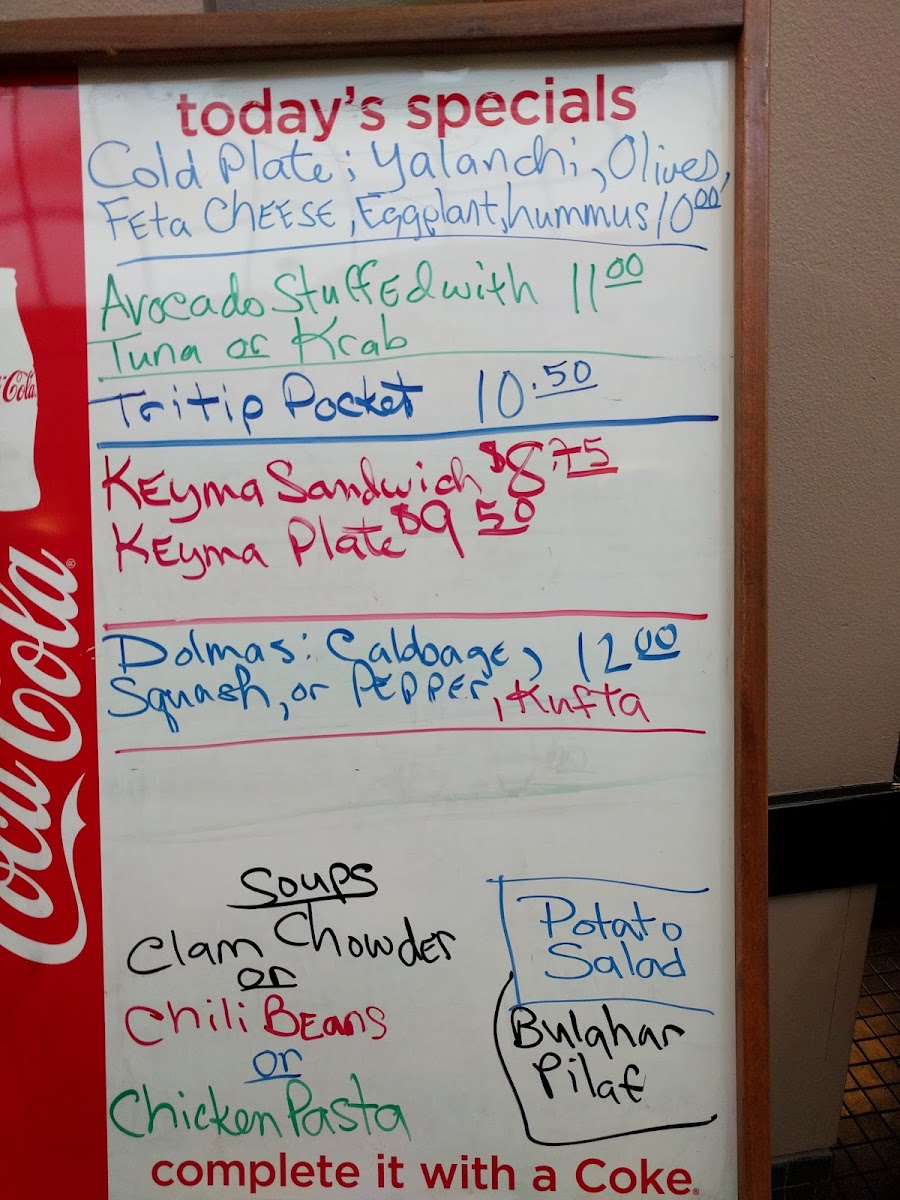 today's specials
Cold Plate; Yalanchi, Olives,
Feta CHEESE, Eggplant, hummus 10.00
Avocado Stuffed with 11 00
Tuna or Krab
Tritip Pocket 10.50
KEyma Sandwich $8.75
KEyma Plate $9 50
Dolmas: Cabbage, 12 00
Squash, or PEPPEr, Kufta
Soups
Clam Chowder
or
Chili BEans
or
Chicken Pasta
Potato
Salad
Bulghar
Pilaf
complete it with a Coke®
Coca-Cola®
Cola